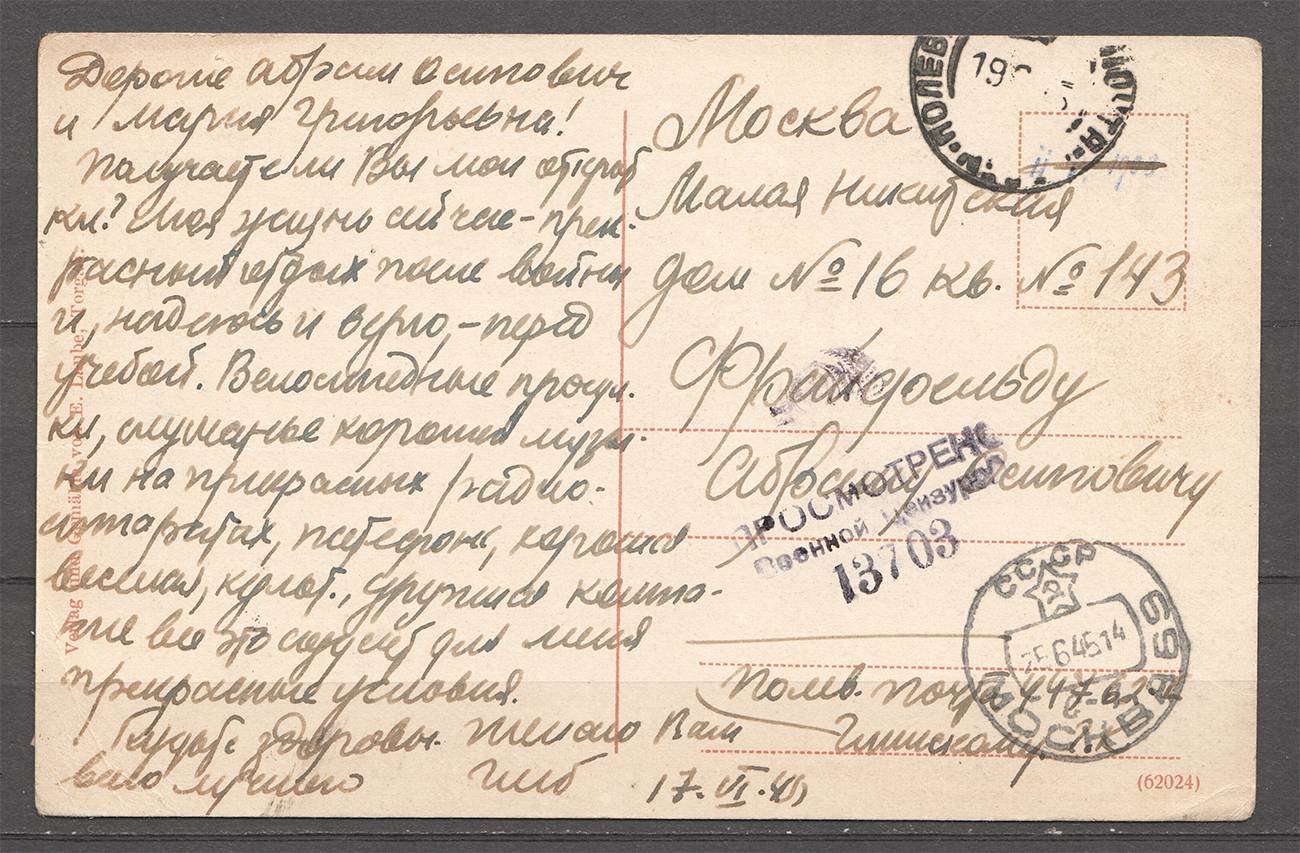 Дорогие Абрам Осипович
и Мария Григорьевна!
Получаете ли Вы мои открыт
ки? Моя жизнь сейчас - прек-
расный отдых после войны
и, надеюсь и верю, - перед
учебой. Велосипедные прогул-
ки, слушанье хорошей музы-
ки на прекрасных радио-
аппаратах, патефоне, хорошая
веселая, культ., дружная компа-
ния все это создает для меня
прекрасные условия.
Будьте здоровы. Желаю Вам
всего лучшего
17.VI.45
Москва
Малая Никитская
дом № 16 кв. № 143
Абраму Осиповичу
Полев. почта
Глинскому
ПОЛЕВ
19
ПРОСМОТРЕНО
Военной Цензурой
13703
СССР
25.6.45.14
МОСКВА 69
Verlag und E. Laube, Torg
(62024)